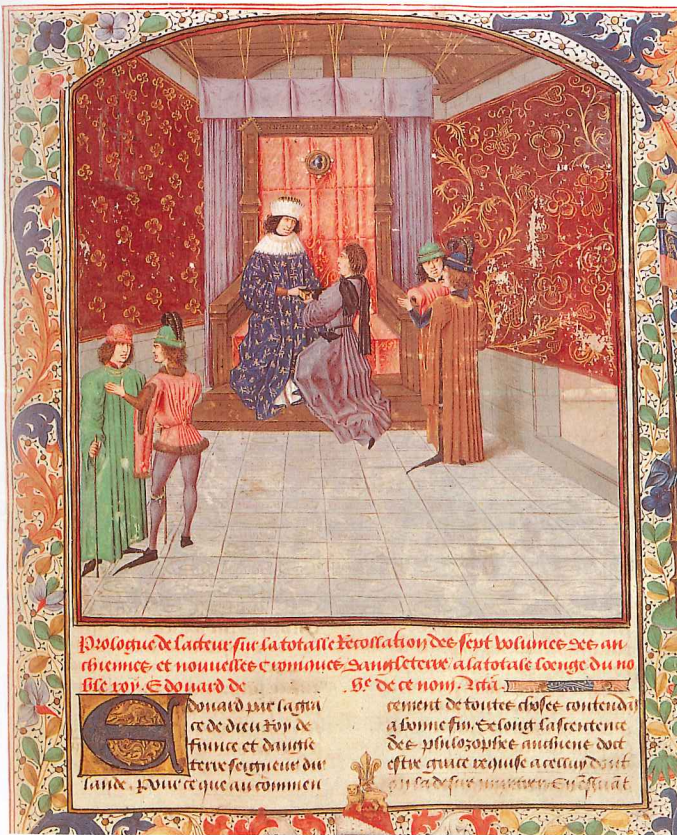 Prologue de lacteur sur la totalle Recollation des sept volumes des an
chiennes et nouvelles croniques dangleterre a la totale loenge du no
ble roy Edouard de ve de ce nom.
Edouard par la gra
ce de dieu Roy de
france et dangle
terre seigneur dir
lande. Pour ce que au commen
cement de toutes choses contendãs
a bonne fin. Selong la sentence
des philozophes anchiens doit
estre grace requise a celluy dont